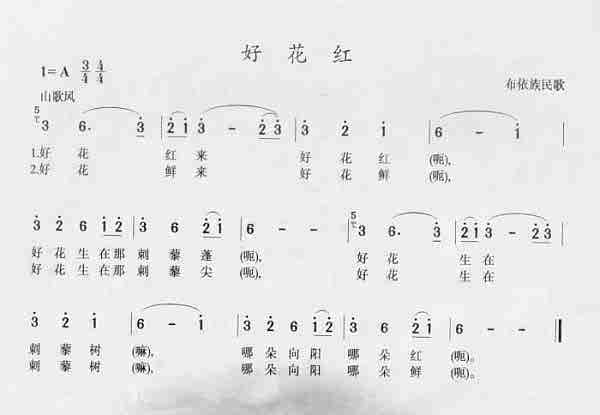 好 花 红
1=A 3/4 4/4
布依族民歌
山歌风
5 3 6. 3 | 2 1 3 - 2 3 | 3 2 1 | 6 - 1 |
1.好 花 红 来 好 花 红 (呃),
2.好 花 鲜 来 好 花 鲜 (呃),
3 2 6 1 2 | 3 3 6 2 1 | 6 - - | 5 3 6. 3 | 2 1 3 - |
好 花 生 在 那 刺 藜 蓬 (呃), 好 花 生 在
好 花 生 在 那 刺 藜 尖 (呃), 好 花 生 在
3 2 1 | 6 - 1 | 3 2 6 1 2 | 3 6 2 1 | 6 - - ‖
刺 藜 树 (嘛), 哪 朵 向 阳 哪 朵 红 (呃)。
刺 藜 树 (嘛), 哪 朵 向 阳 哪 朵 鲜 (呃)。